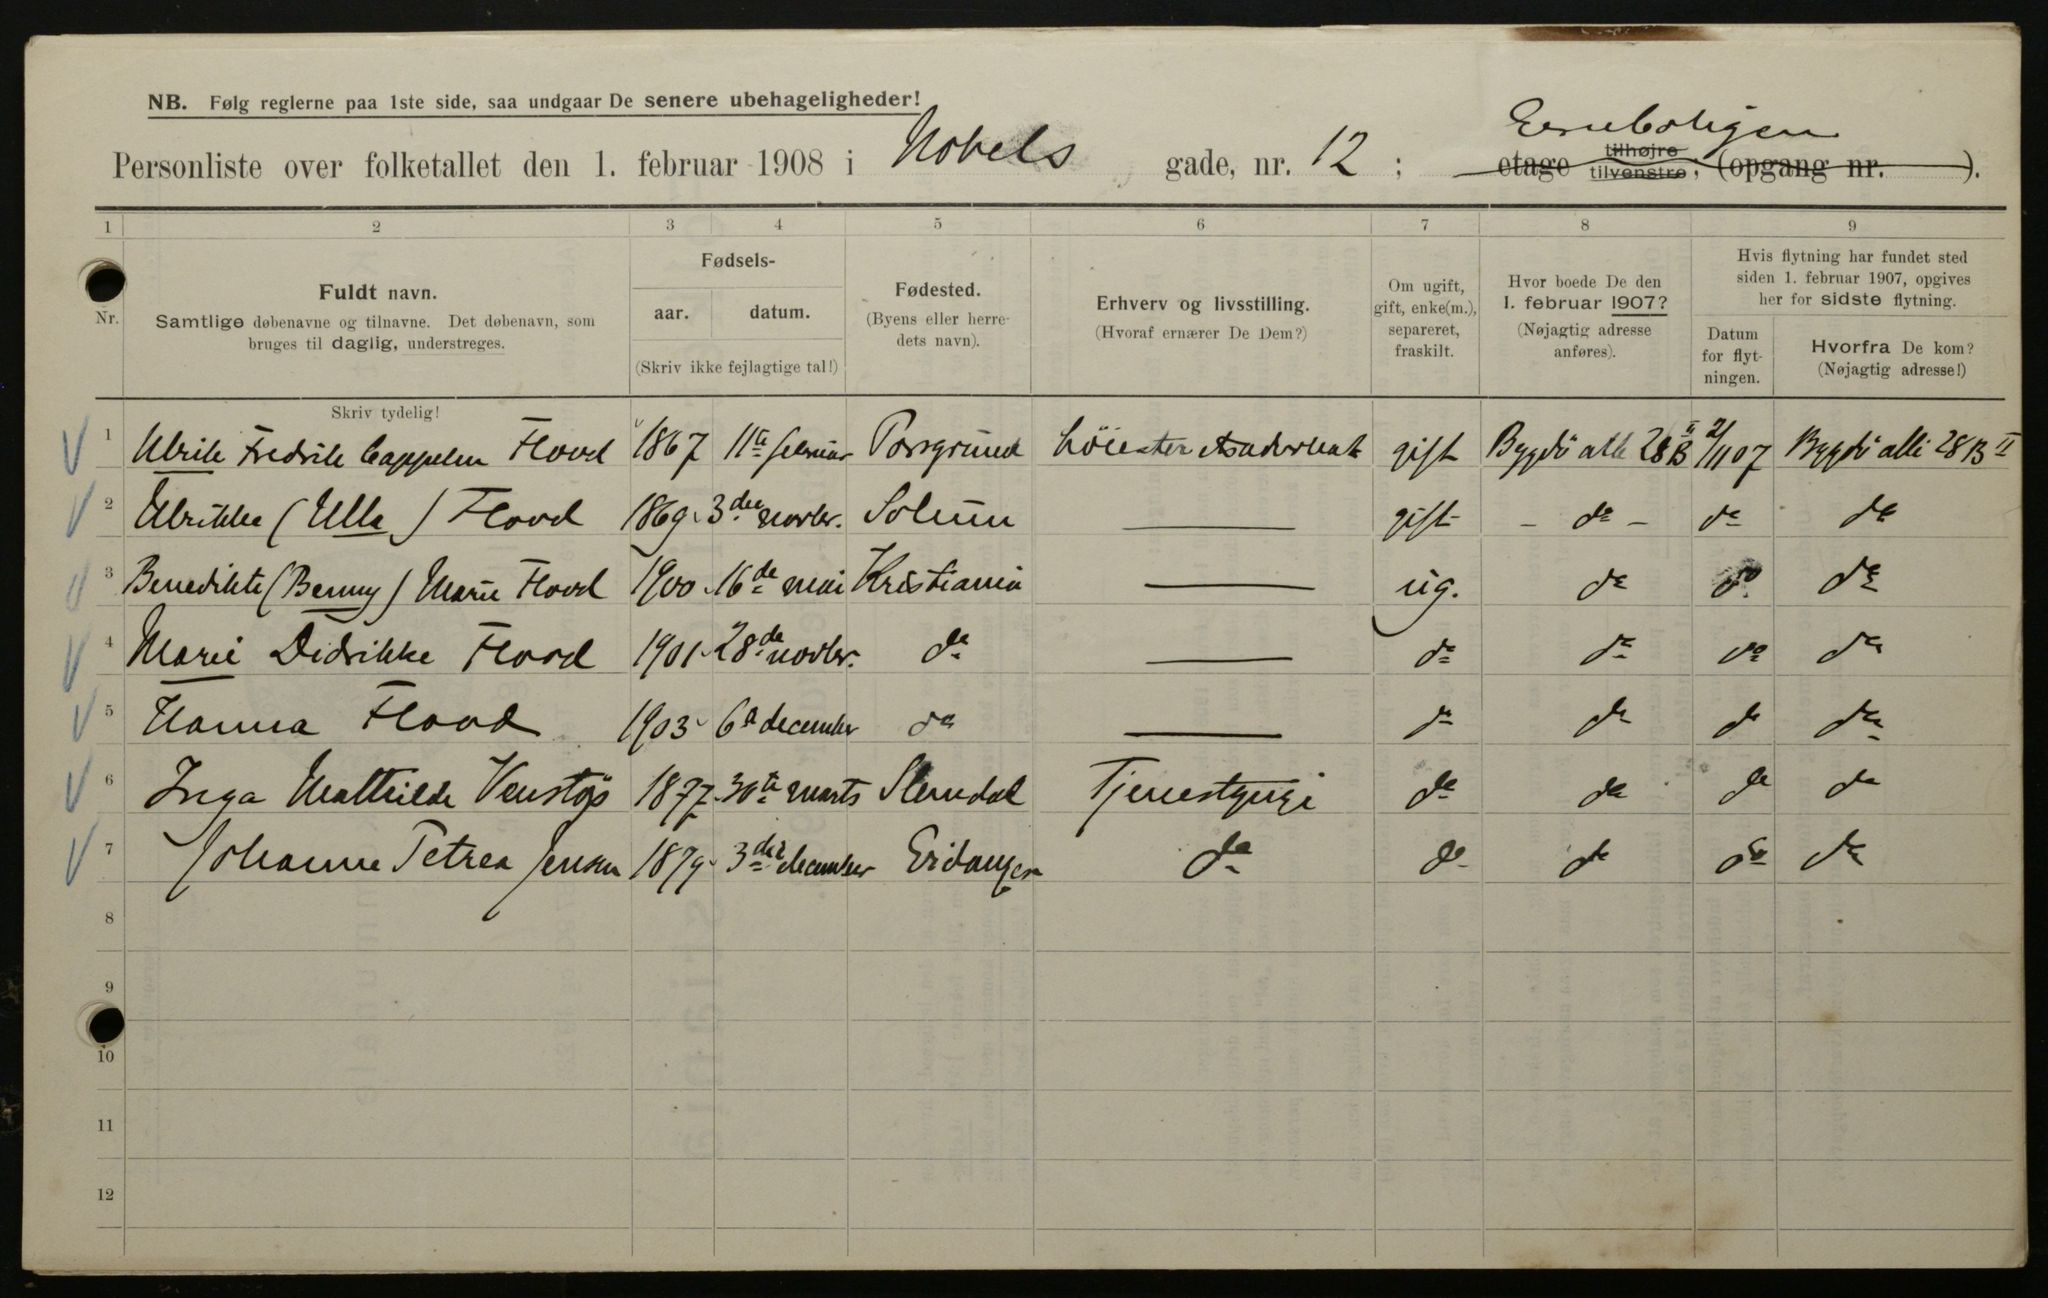 NB. Følg reglerne paa 1ste side, saa undgaar De senere ubehageligheder!
Personliste over folketallet den 1. februar 1908 i Nobels gade, nr. 12 ; etage tilhøjre tilvenstre; (opgang nr. ).
1 2 3 4 5 6 7 8 9
Nr.
Fuldt navn.
Samtlige døbenavne og tilnavne. Det døbenavn, som
bruges til daglig, understreges.
Fødsels-
aar. datum.
(Skriv ikke fejlagtige tal!)
Fødested.
(Byens eller herre-
dets navn).
Erhverv og livsstilling.
(Hvoraf ernærer De Dem?)
Om ugift,
gift, enke(m.),
separeret,
fraskilt.
Hvor boede De den
1. februar 1907?
(Nøjagtig adresse
anføres).
Hvis flytning har fundet sted
siden 1. februar 1907, opgives
her for sidste flytning.
Datum
for flyt-
ningen.
Hvorfra De kom?
(Nøjagtig adresse!)
Skriv tydelig!
1 Ulrik Fredrik Cappelen Flood 1867 11te februar Porsgrund gift Bygdö alle 28 B II 2/11 07 Bygdö alle 28 B II
2 Ulrikke (Ulla) Flood 1869 3die novbr. Solum — gift – do – do do
3 Benedikte (Benny) Marie Flood 1900 16de mai Kristiania — ug. do do do
4 Marie Didrikke Flood 1901 28de novbr. do — do do do do
5 Hanna Flood 1903 6te december do — do do do do
6 Inga Mathilde Venstøp 1877 30te marts Slemdal Tjenestepige do do do do
7 Johanne Petrea Jensen 1879 3die december Eidanger do do do do do
8
9
10
11
12